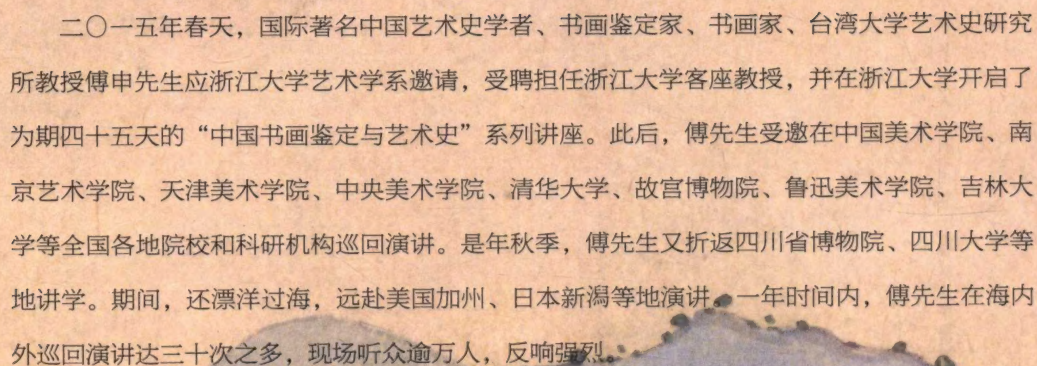 二〇一五年春天，国际著名中国艺术史学者、书画鉴定家、书画家、台湾大学艺术史研究
所教授傅申先生应浙江大学艺术学系邀请，受聘担任浙江大学客座教授，并在浙江大学开启了
为期四十五天的“中国书画鉴定与艺术史”系列讲座。此后，傅先生受邀在中国美术学院、南
京艺术学院、天津美术学院、中央美术学院、清华大学、故宫博物院、鲁迅美术学院、吉林大
学等全国各地院校和科研机构巡回演讲。是年秋季，傅先生又折返四川省博物院、四川大学等
地讲学。期间，还漂洋过海，远赴美国加州、日本新潟等地演讲。一年时间内，傅先生在海内
外巡回演讲达三十次之多，现场听众逾万人，反响强烈。